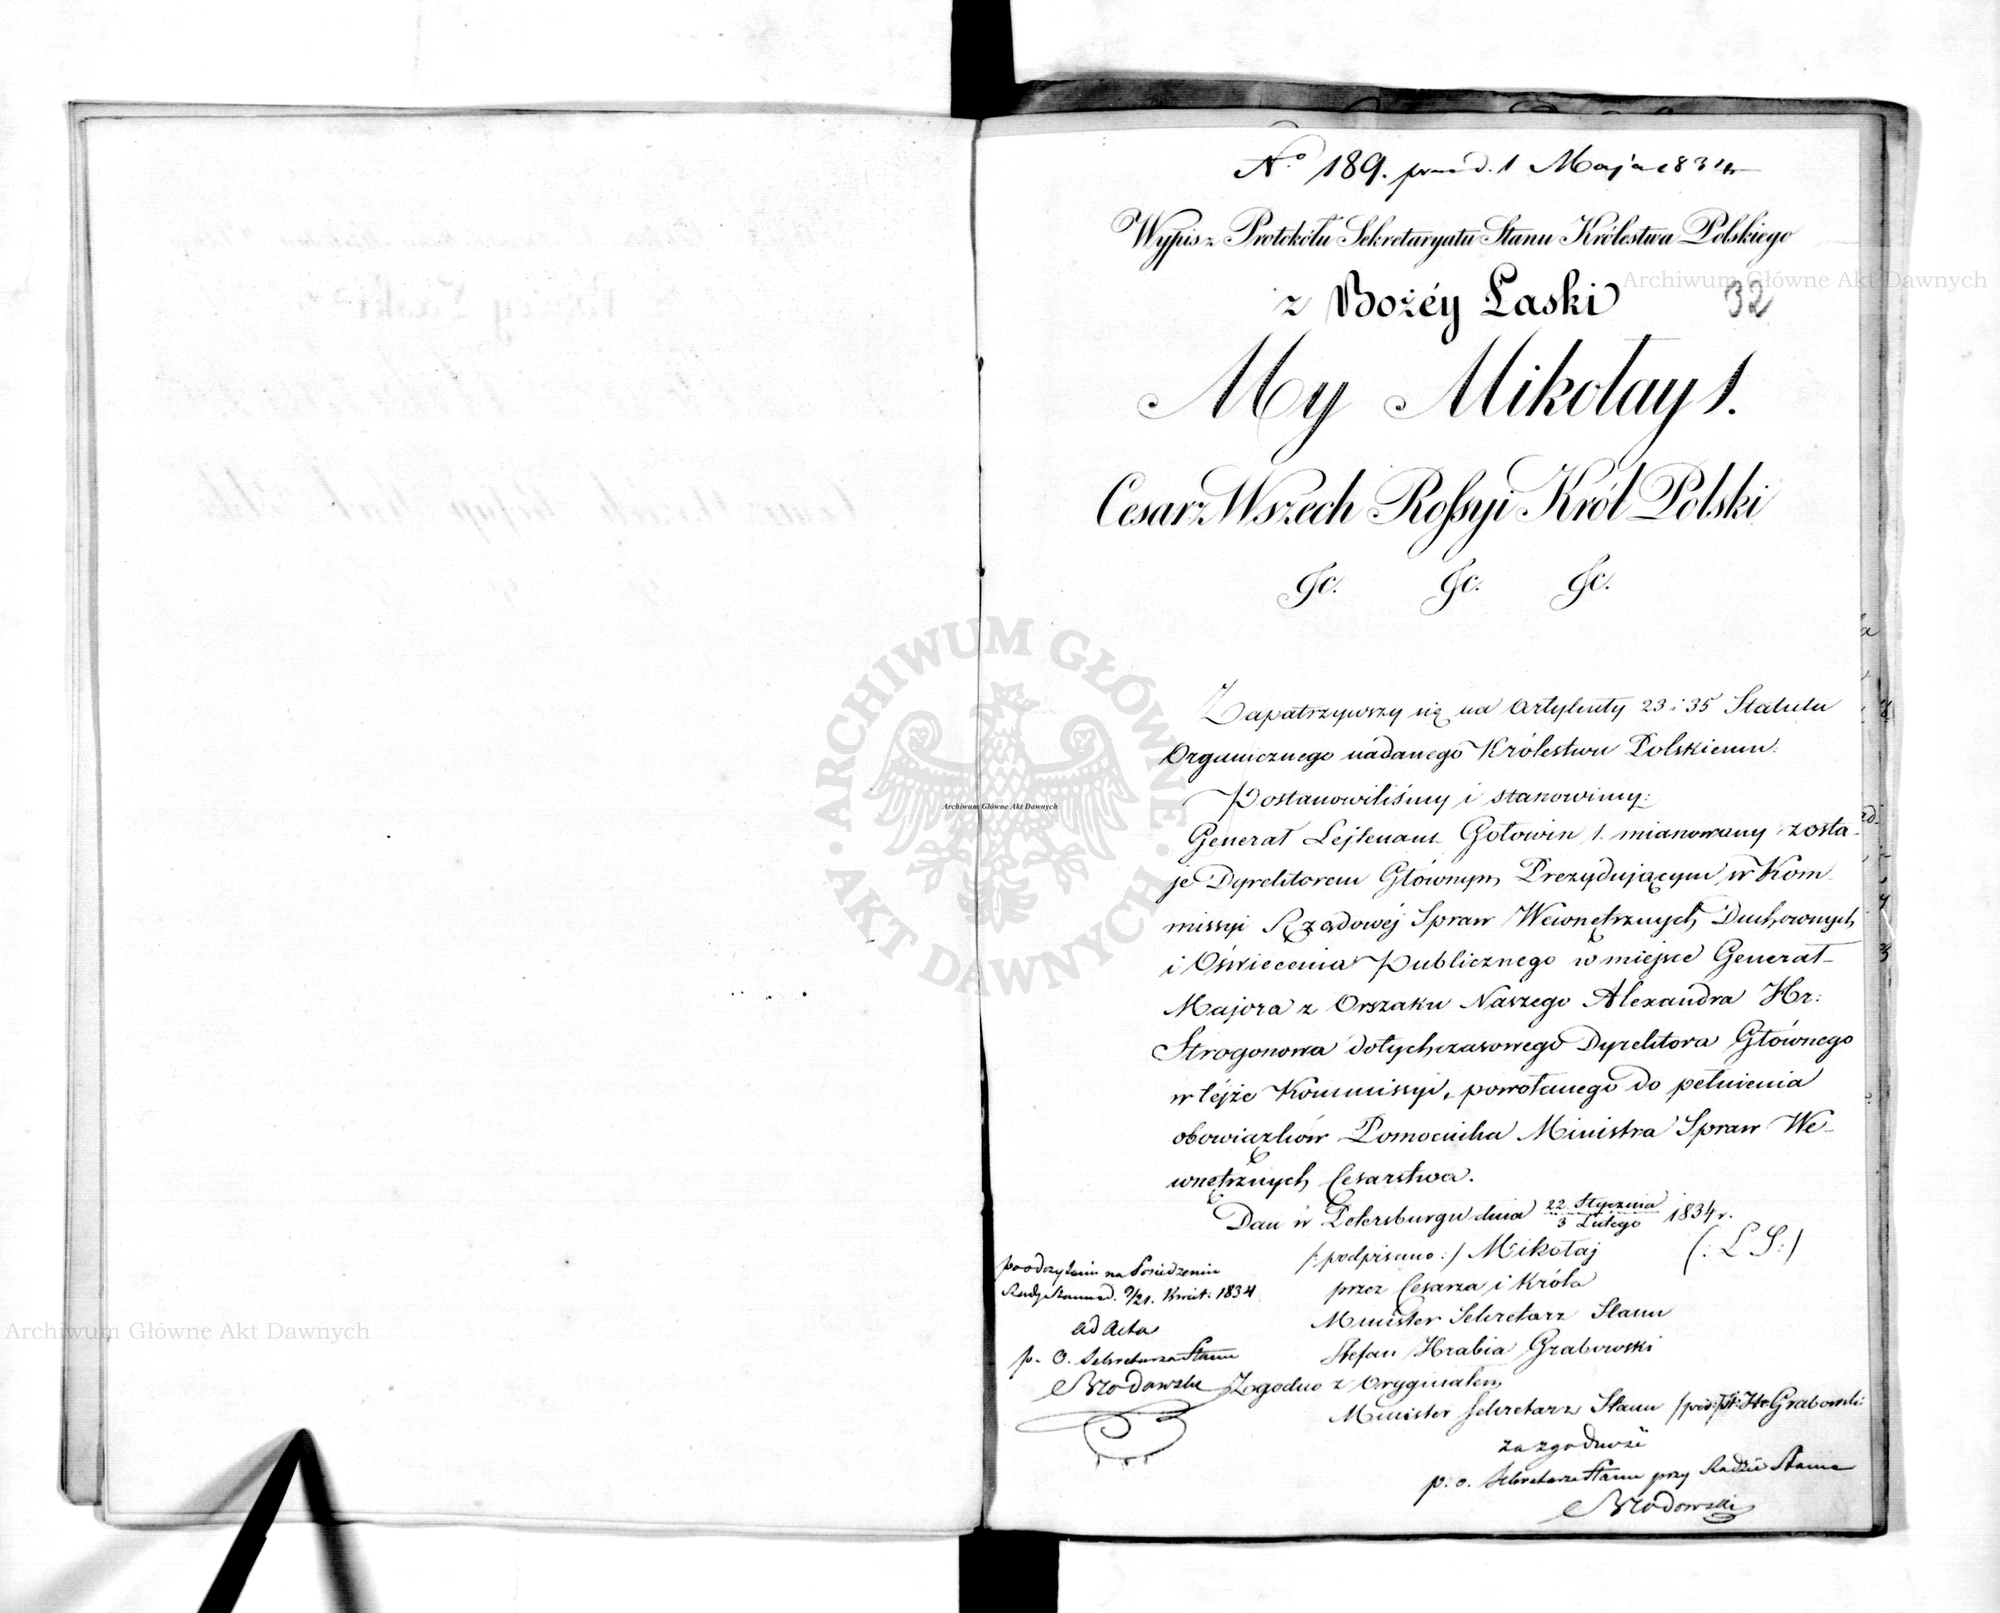 No 189. prod. 1 Maja 1834
Wypis z Protokółu Sekretaryatu Stanu Królestwa Polskiego
z Bożéy Łaski
32
My Mikołay 1.
Cesarz Wszech Rossyi Król Polski
&c. &c. &c.
Zapatrzywszy się na Artykuły 23 i 35 Statutu
Organicznego nadanego Królestwu Polskiemu.
Postanowiliśmy i stanowimy:
Generał Lejtenant Gołowin 1. mianowany zosta-
je Dyrektorem Głównym Prezydującym w Kom-
missyi Rządowéj Spraw Wewnętrznych Duchownych
i Oświecenia Publicznego w miejsce Generał-
Majora z Orszaku Naszego Alexandra Hr:
Strogonowa dotychczasowego Dyrektora Głównego
w téjże Kommissyi, powołanego do pełnienia
obowiązków Pomocnika Ministra Spraw We-
wnętrznych Cesarstwa.
Dan w Petersburgu dnia 22 Stycznia / 3 Lutego 1834 r.
/:podpisano:/ Mikołaj (: L S :)
przez Cesarza i Króla
Minister Sekretarz Stanu
Stefan Hrabia Grabowski
Zgodno z Oryginałem
Minister Sekretarz Stanu /pod:/ St: Hr. Grabowski
za zgodność
p. o. Sekretarza Stanu przy Radzie Stanu
Brodowski
po odczytaniu na Posiedzeniu
Rady Stanu d. 9/21. Kwiet: 1834
ad acta
p. O. Sekretarza Stanu
Brodowski
ARCHIWUM GŁÓWNE AKT DAWNYCH
Archiwum Główne Akt Dawnych
Archiwum Główne Akt Dawnych
Archiwum Główne Akt Dawnych